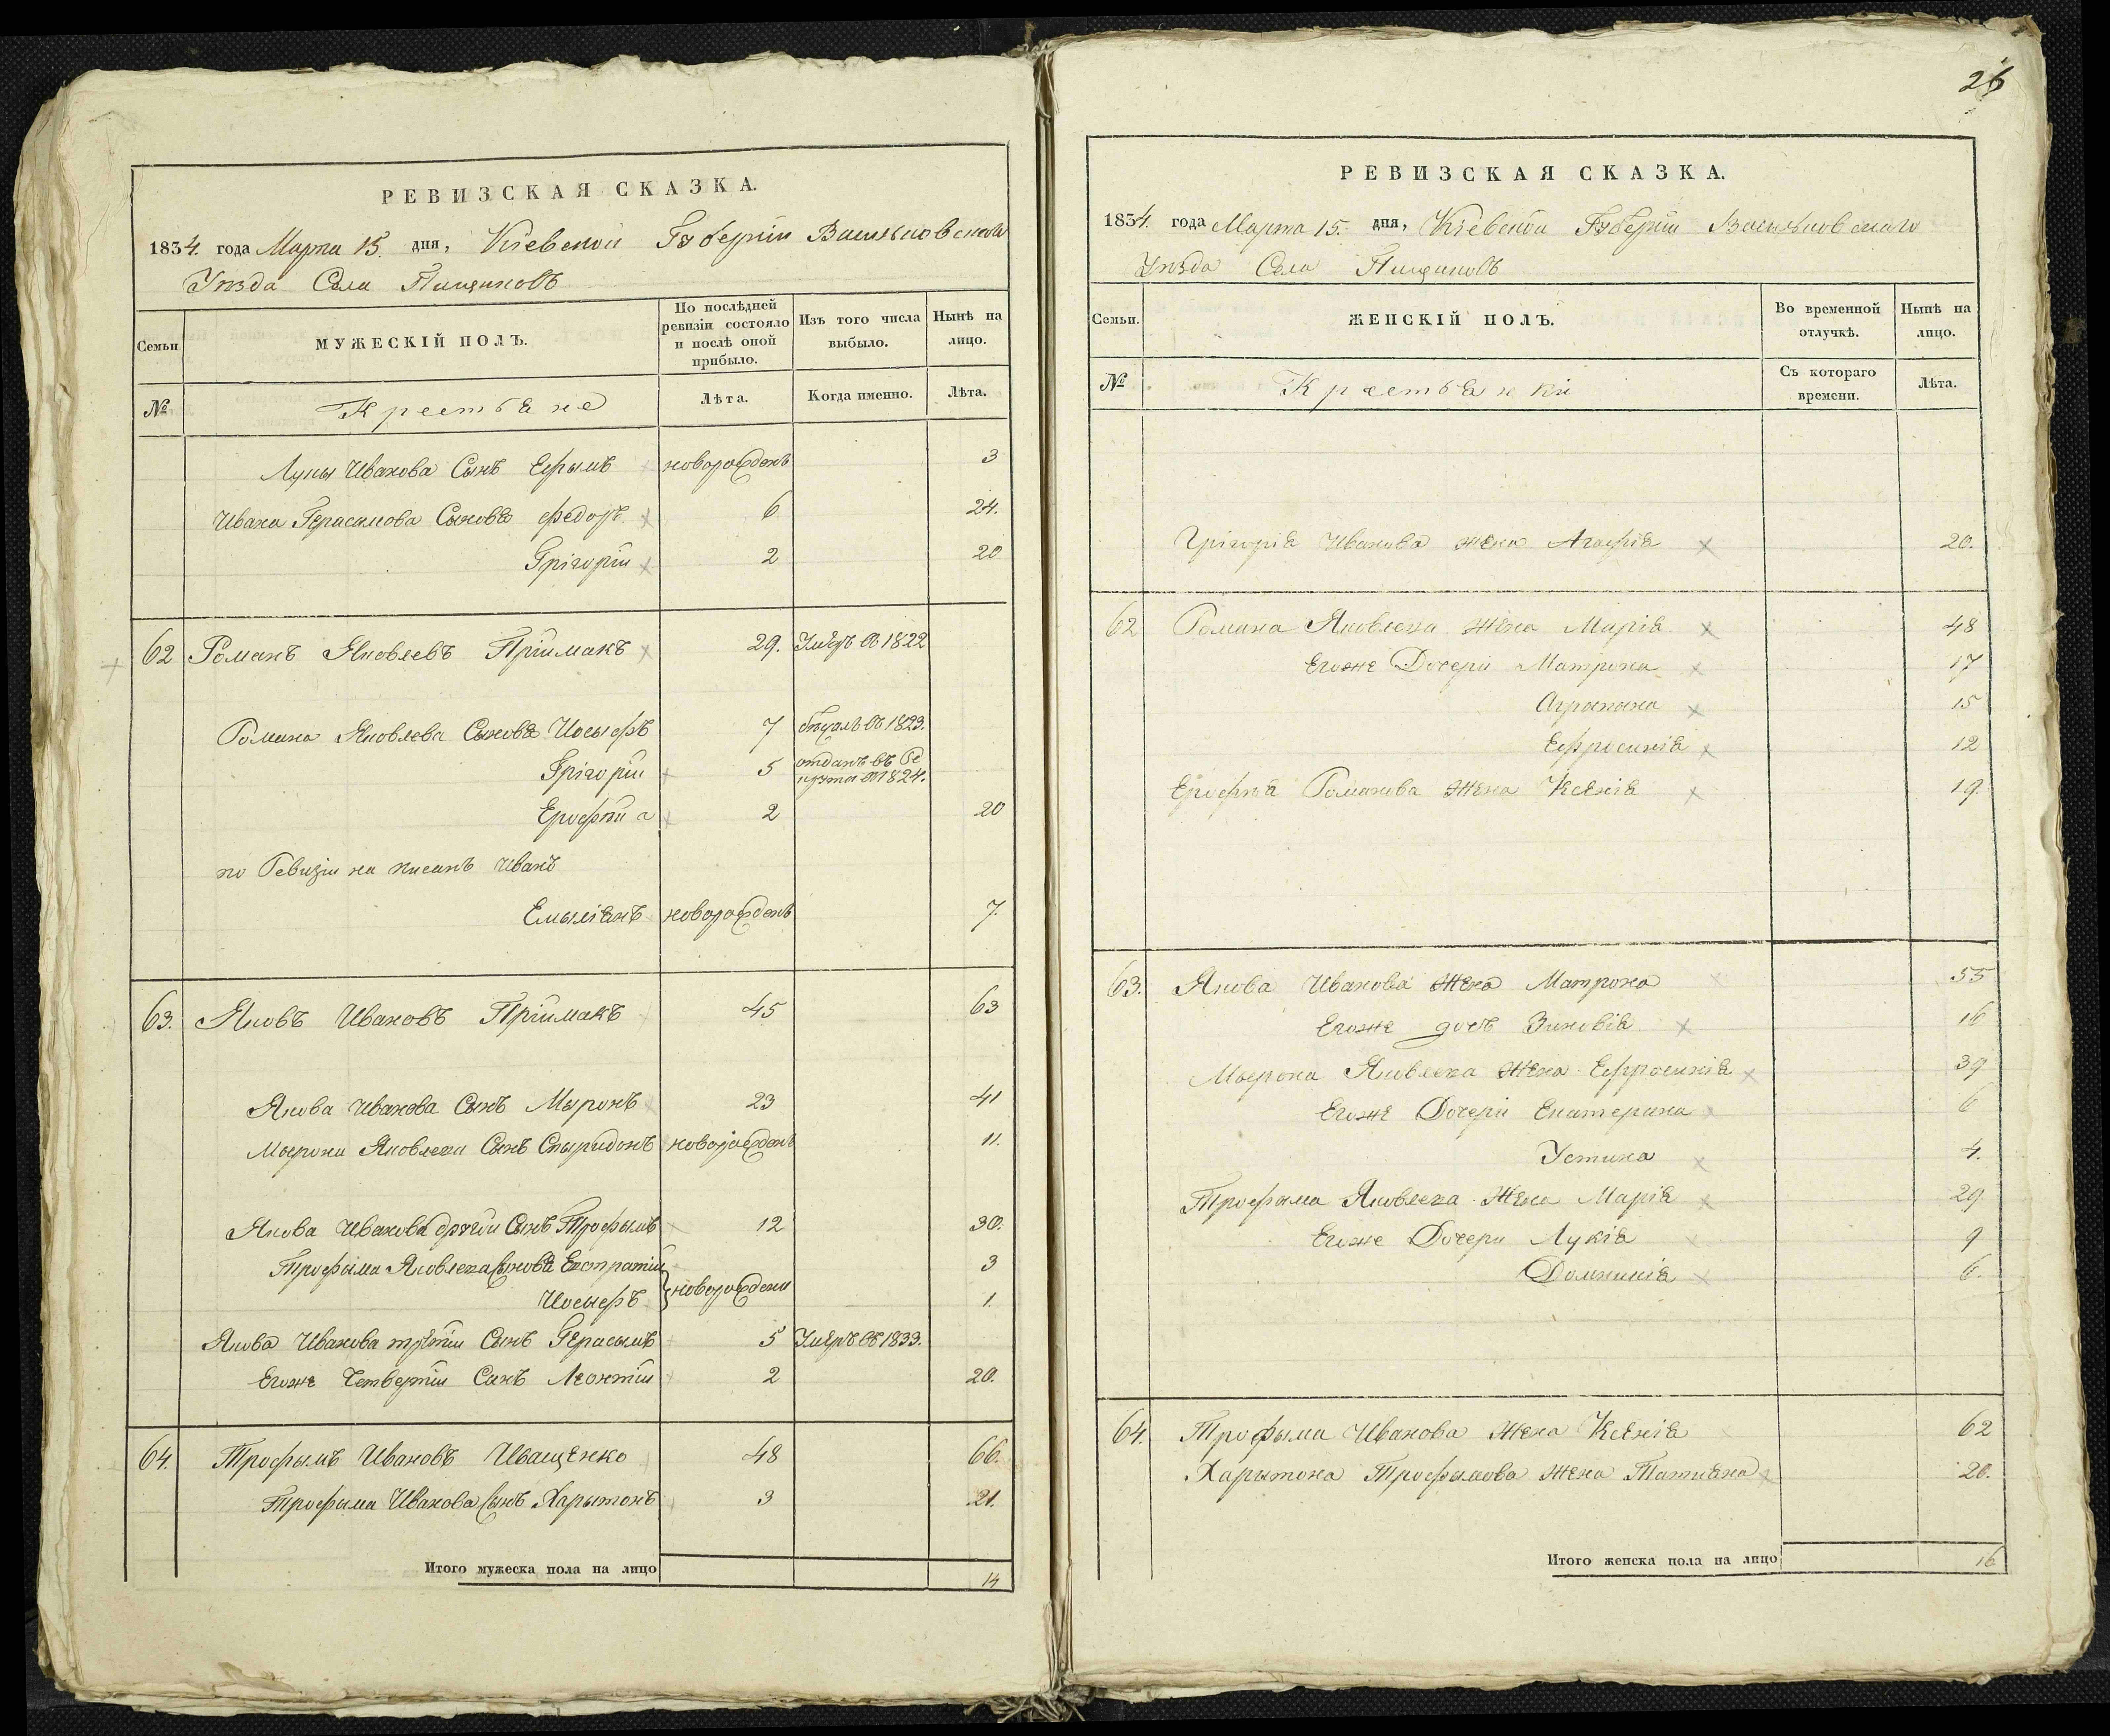 РЕВИЗСКАЯ СКАЗКА.
1834. года Марта 15. дня, Кіевской Губерніи Васильковскаго
Уѣзда Села Пищиковъ
Семьи.
МУЖЕСКІЙ ПОЛЪ.
По послѣдней ревизіи состояло и послѣ оной прибыло.
Изъ того числа выбыло.
Нынѣ на лицо.
№
Крестьяне
Лѣта.
Когда именно.
Лѣта.
Луки Иванова Сынъ Ефымъ новорожденъ 3
Ивана Герасимова Сыновья Федоръ 6 24.
Григорій 2 20
62 Романъ Яковлевъ Пріймакъ 29. Умеръ въ 1822
Романа Яковлева Сыновья Иосыфъ 7 бѣжалъ въ 1823.
Григорій 5 отданъ въ Рекруты въ 1824.
Ерофѣй а 2 20
по Ревизіи на писанъ Иванъ
Емыліянъ новорожденъ 7.
63. Яковъ Ивановъ Пріймакъ 45 63
Якова Иванова Сынъ Мыронъ 23 41
Мырона Яковлева Сынъ Спырыдонъ новорожденъ 11.
Якова Иванова другій Сынъ Трофымъ 12 30.
Трофыма Яковлева Сыновья Евстратій 3
новорождены
Иосыфъ 1.
Якова Иванова третій Сынъ Герасымъ 5 Умеръ въ 1833.
Егоже Четвертій Сынъ Леонтій 2 20.
64. Трофымъ Ивановъ Иващенко 48 66.
Трофыма Иванова Сынъ Харытонъ 3 21.
Итого мужеска пола на лицо 14
26
РЕВИЗСКАЯ СКАЗКА.
1834. года Марта 15. дня, Кіевской Губерніи Васильковскаго
Уѣзда Села Пищиковъ
Семьи.
ЖЕНСКІЙ ПОЛЪ.
Во временной отлучкѣ.
Нынѣ на лицо.
№
Крестьянки
Съ котораго времени.
Лѣта.
Григорія Иванова жена Агафія 20.
62 Романа Яковлева Жена Марія 48
Егоже Дочери Матрона 17
Агрипина 15
Ефросинія 12
Ерофѣя Романова Жена Ксенія 19.
63. Якова Иванова Жена Матрона 55
Егоже дочь Зиновія 16
Мырона Яковлева Жена Ефросинія 39
Егоже Дочери Екатерина 6
Устина 4.
Трофыма Яковлева Жена Марія 29
Егоже Дочери Лукія 9
Домникія 6.
64. Трофыма Иванова Жена Ксенія 62
Харытона Трофымова жена Татіяна 20.
Итого женска пола на лицо 16